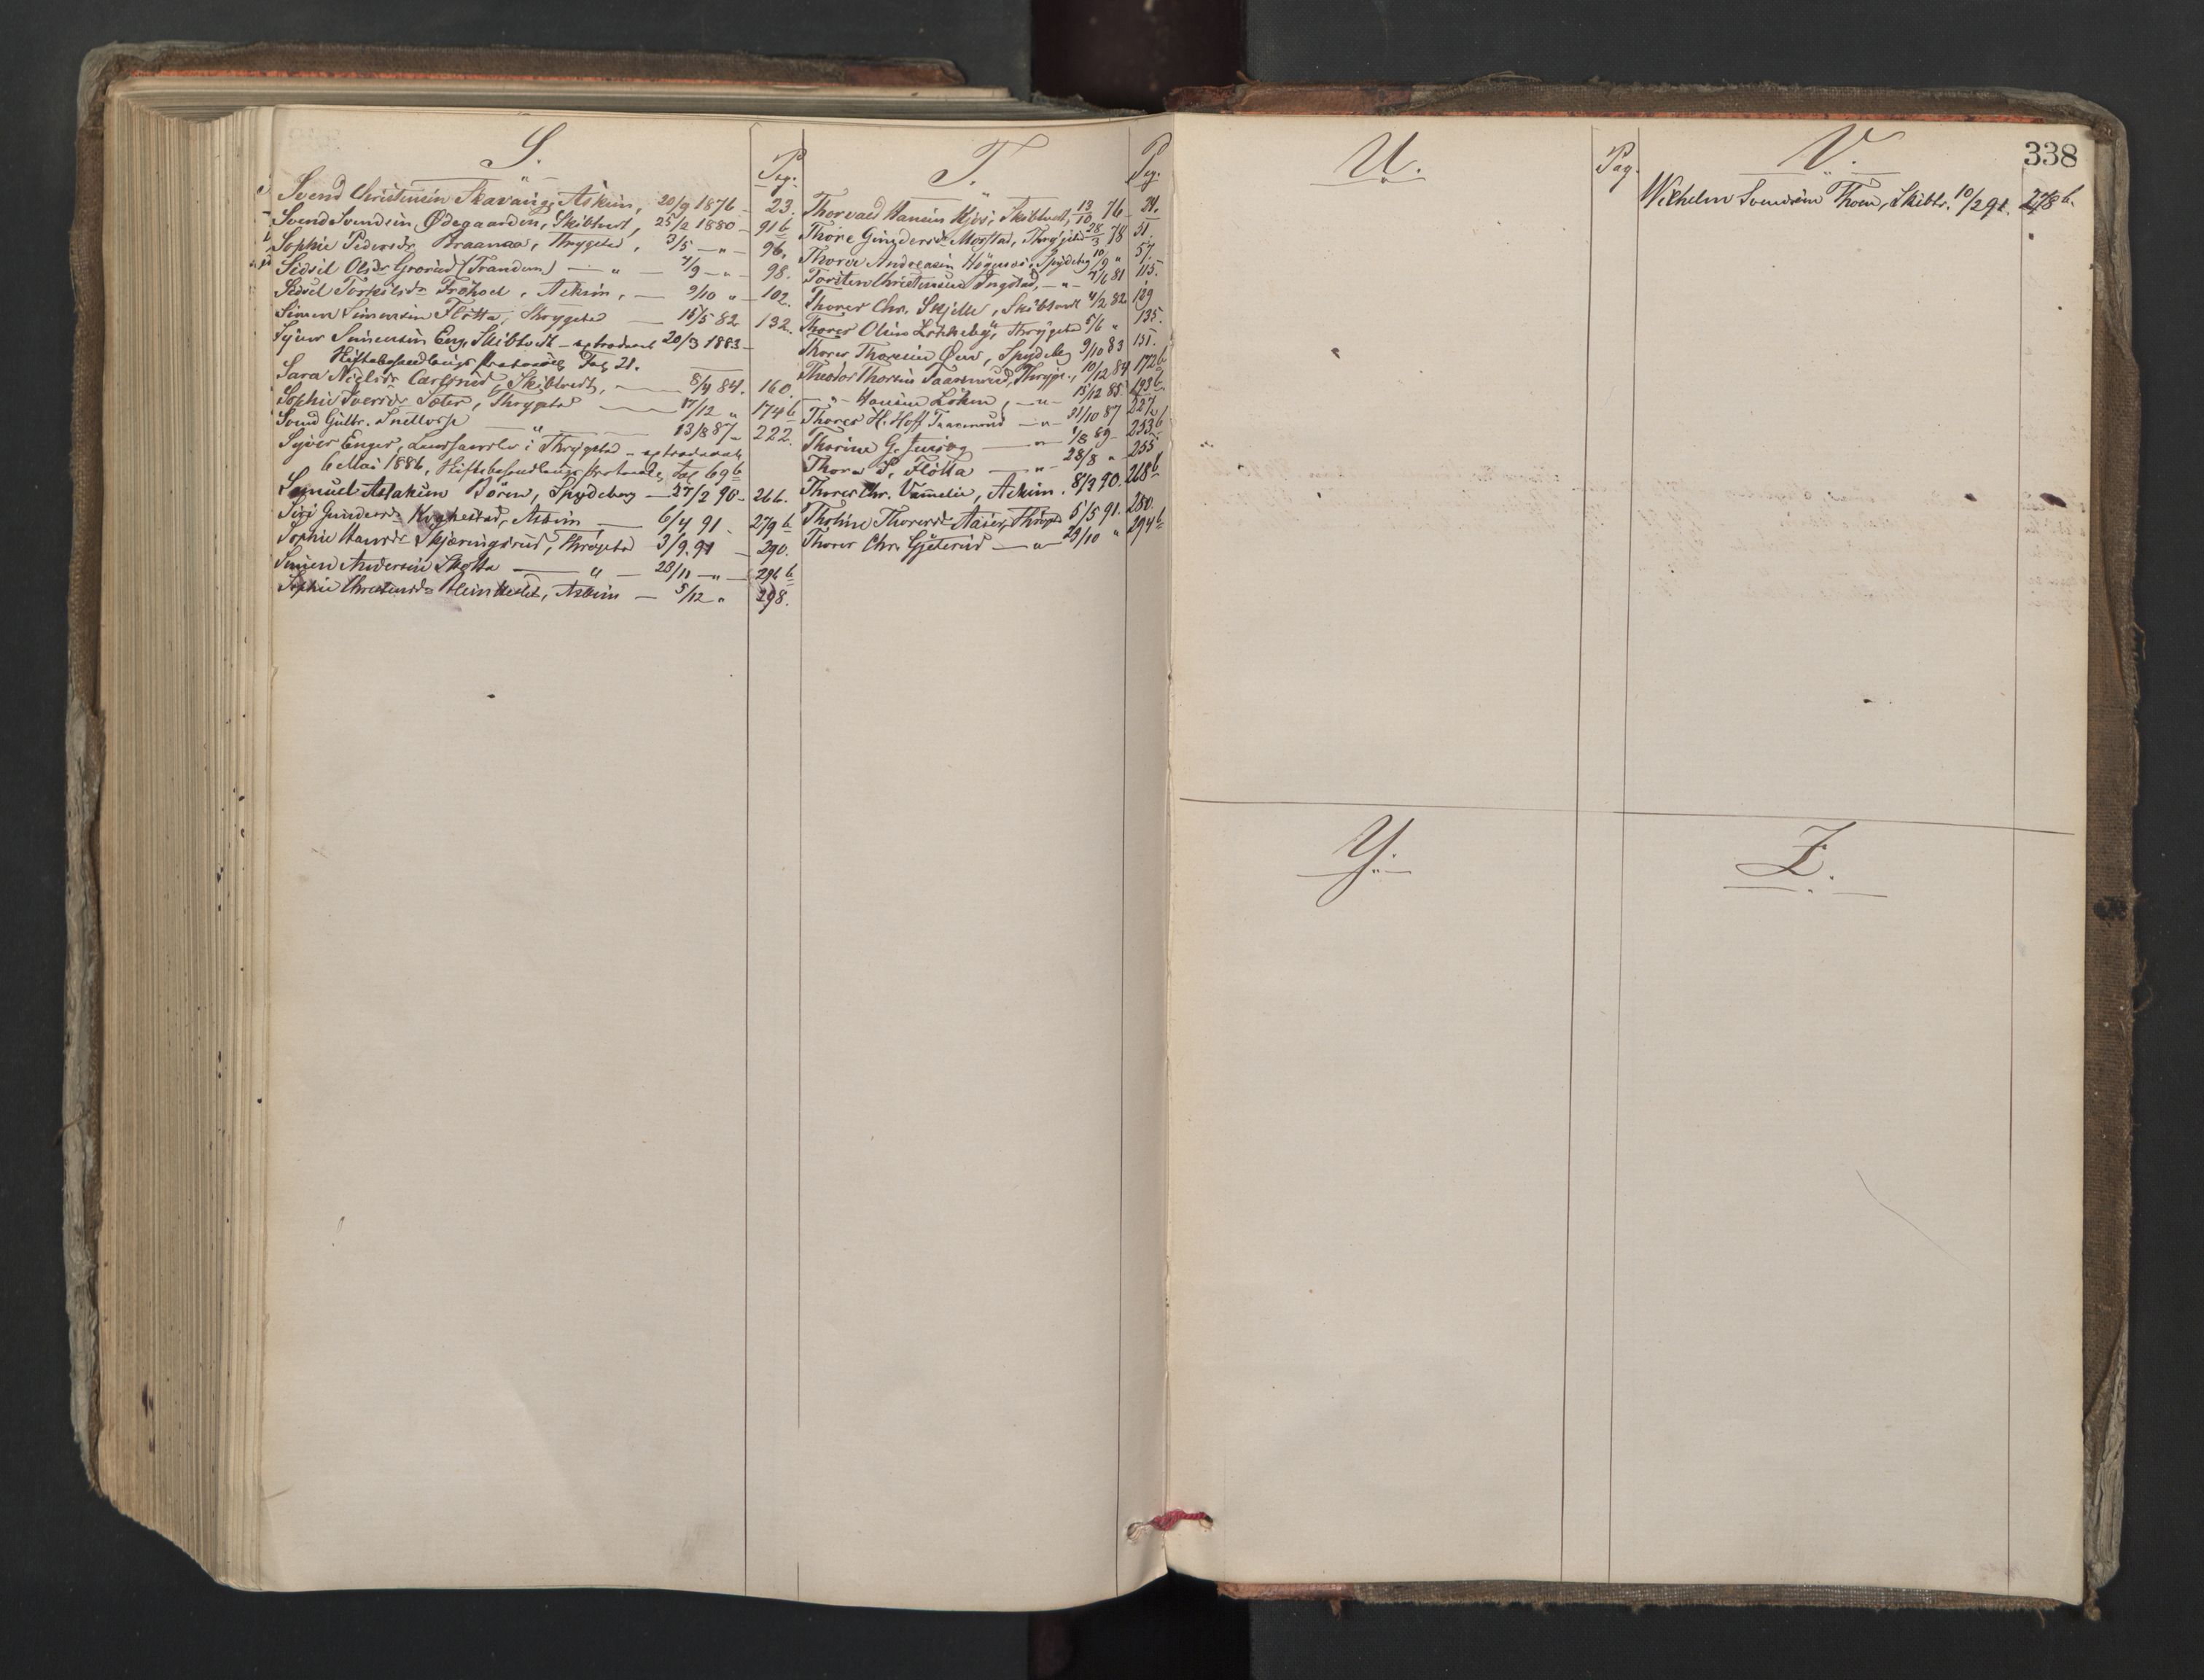 S.
Pag.
Svend Christensen Skavang, Askim, 20/9 1876 - 23.
Svend Svendsen Ødegaarden, Skibtvedt, 25/2 1880 - 91 b
Sophie Pedersdr Braanaa, Thrygstad, 3/5 - " - 96.
Sidsil Olsdr Grorud (Trandum) - " - 7/9 - " - 98.
Sidsel Torkilsdr Frøhoel, Askim, - 9/10 " - 102.
Simen Simensen Fløtta, Thrygstad - 15/5 82 132.
Syver Simensen Eng, Skibtvedt - extraderet 20/3 1883 -
Skiftebehandlings Protocol, Fol. 21.
Sara Nielsdr Carlsrud, Skibtvedt, - 8/4 84. 160.
Sophie Syversdr Sæter, Thrygstad - 17/12 " 174 b
Svend Gulbr. - " - 13/8 87 - 222.
Syver Enger, i Thrygstad - extraderet
6 Mai 1886, Skiftebehandlings Protocol, Fol 69 b
Samuel Aslaksen Børen, Spydeberg - 27/2 90 - 266.
Siri Gundersdr Askim - 6/4 91 - 279 b
Sophie Hansdr Skjæringsrud, Thrygstad 3/9. 91 - 290.
Simen Andersen Skotta - " - 28/11 - " - 296 b
Sophie Christensdr Askim - 5/12 " 298.
T.
Pag.
Thorvald Hansen Kjos, Skibtvedt, 13/10 76 - 24.
Thore Gundersdr Mosstad, Thrygstad 28/3 78 51.
Thorer Andreasen Spydeberg 10/9 " 57.
Torsten Christensen Ingstad, - " - 7/6 81 115.
Thorer Chr. Skjelle, Skibtvedt 4/2 82 129
Thorer Olsen Løkkeby, Thrygstad 5/6 " 135.
Thorer Thoresen Øen, Spydeberg 9/10 83 151.
Theodor Thorsen Taasenrud, Thrygst., 10/12 84 172 b
- " - Hansen Løken, - " - 15/12 85 193 b
Thorer H. Hoff Taasenrud - " - 31/10 87 227.
Thorine G. - " - 1/8 89 - 253 b
Thora S. Fløtta - " - 28/8 " - 255
Thorer Chr. Vammelie, Askim. 8/3 90. 268 b
Tholine Thorersdr Aaser, Thrygst 5/5 91. 280.
Thorer Chr. Gjeterud - " - 29/10 " 294 b
U.
Pag.
V.
338
Wilhelm Svendsen Thoen, Skibtv. 10/2 91. 278 b.
Y.
Z.